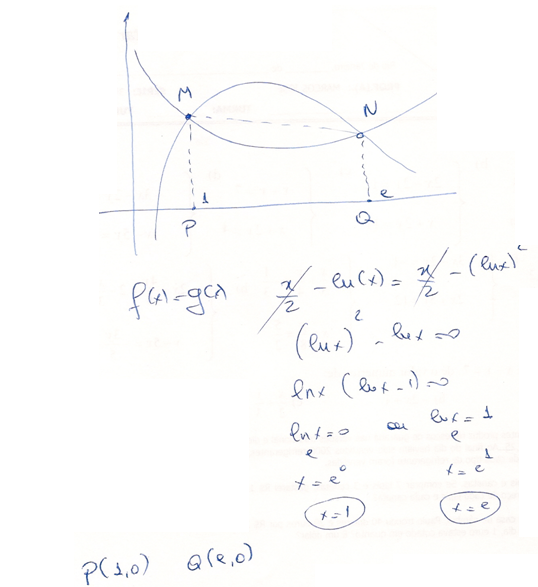 M
N
1
e
P
Q
f(x)=g(x) x/2 - ln(x) = x/2 - (lnx)²
(lnx)² - lnx = 0
lnx (lnx - 1) = 0
lnx = 0 ou lnx = 1
e e
x = e⁰ x = e¹
x = 1 x = e
P(1,0) Q(e,0)